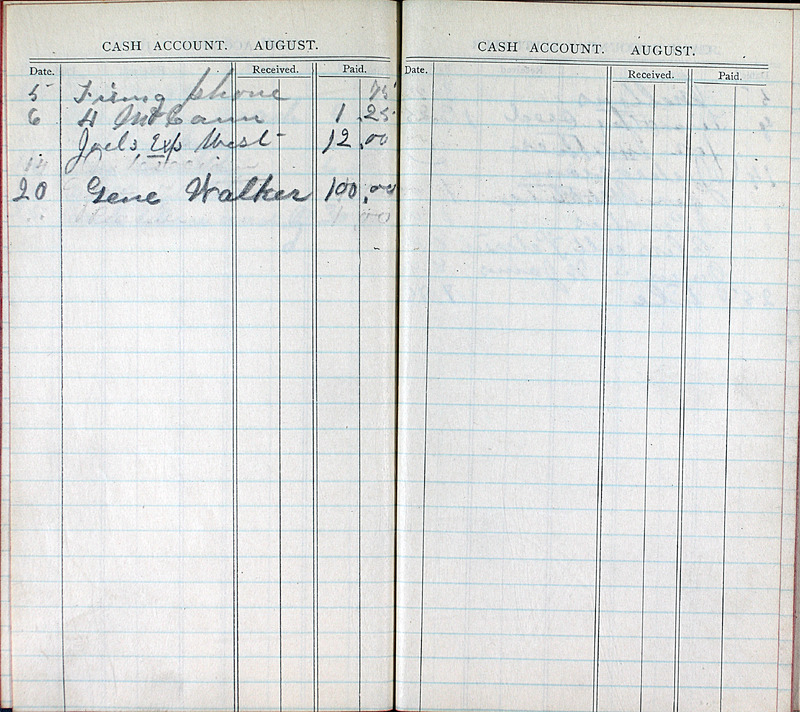 CASH ACCOUNT. AUGUST.
Date. Received. Paid.
5 Fixing phone 75
6 H McCann 1.25
Joels Exp West 12.00
14
20 Gene Walker 100.00
CASH ACCOUNT. AUGUST.
Date. Received. Paid.